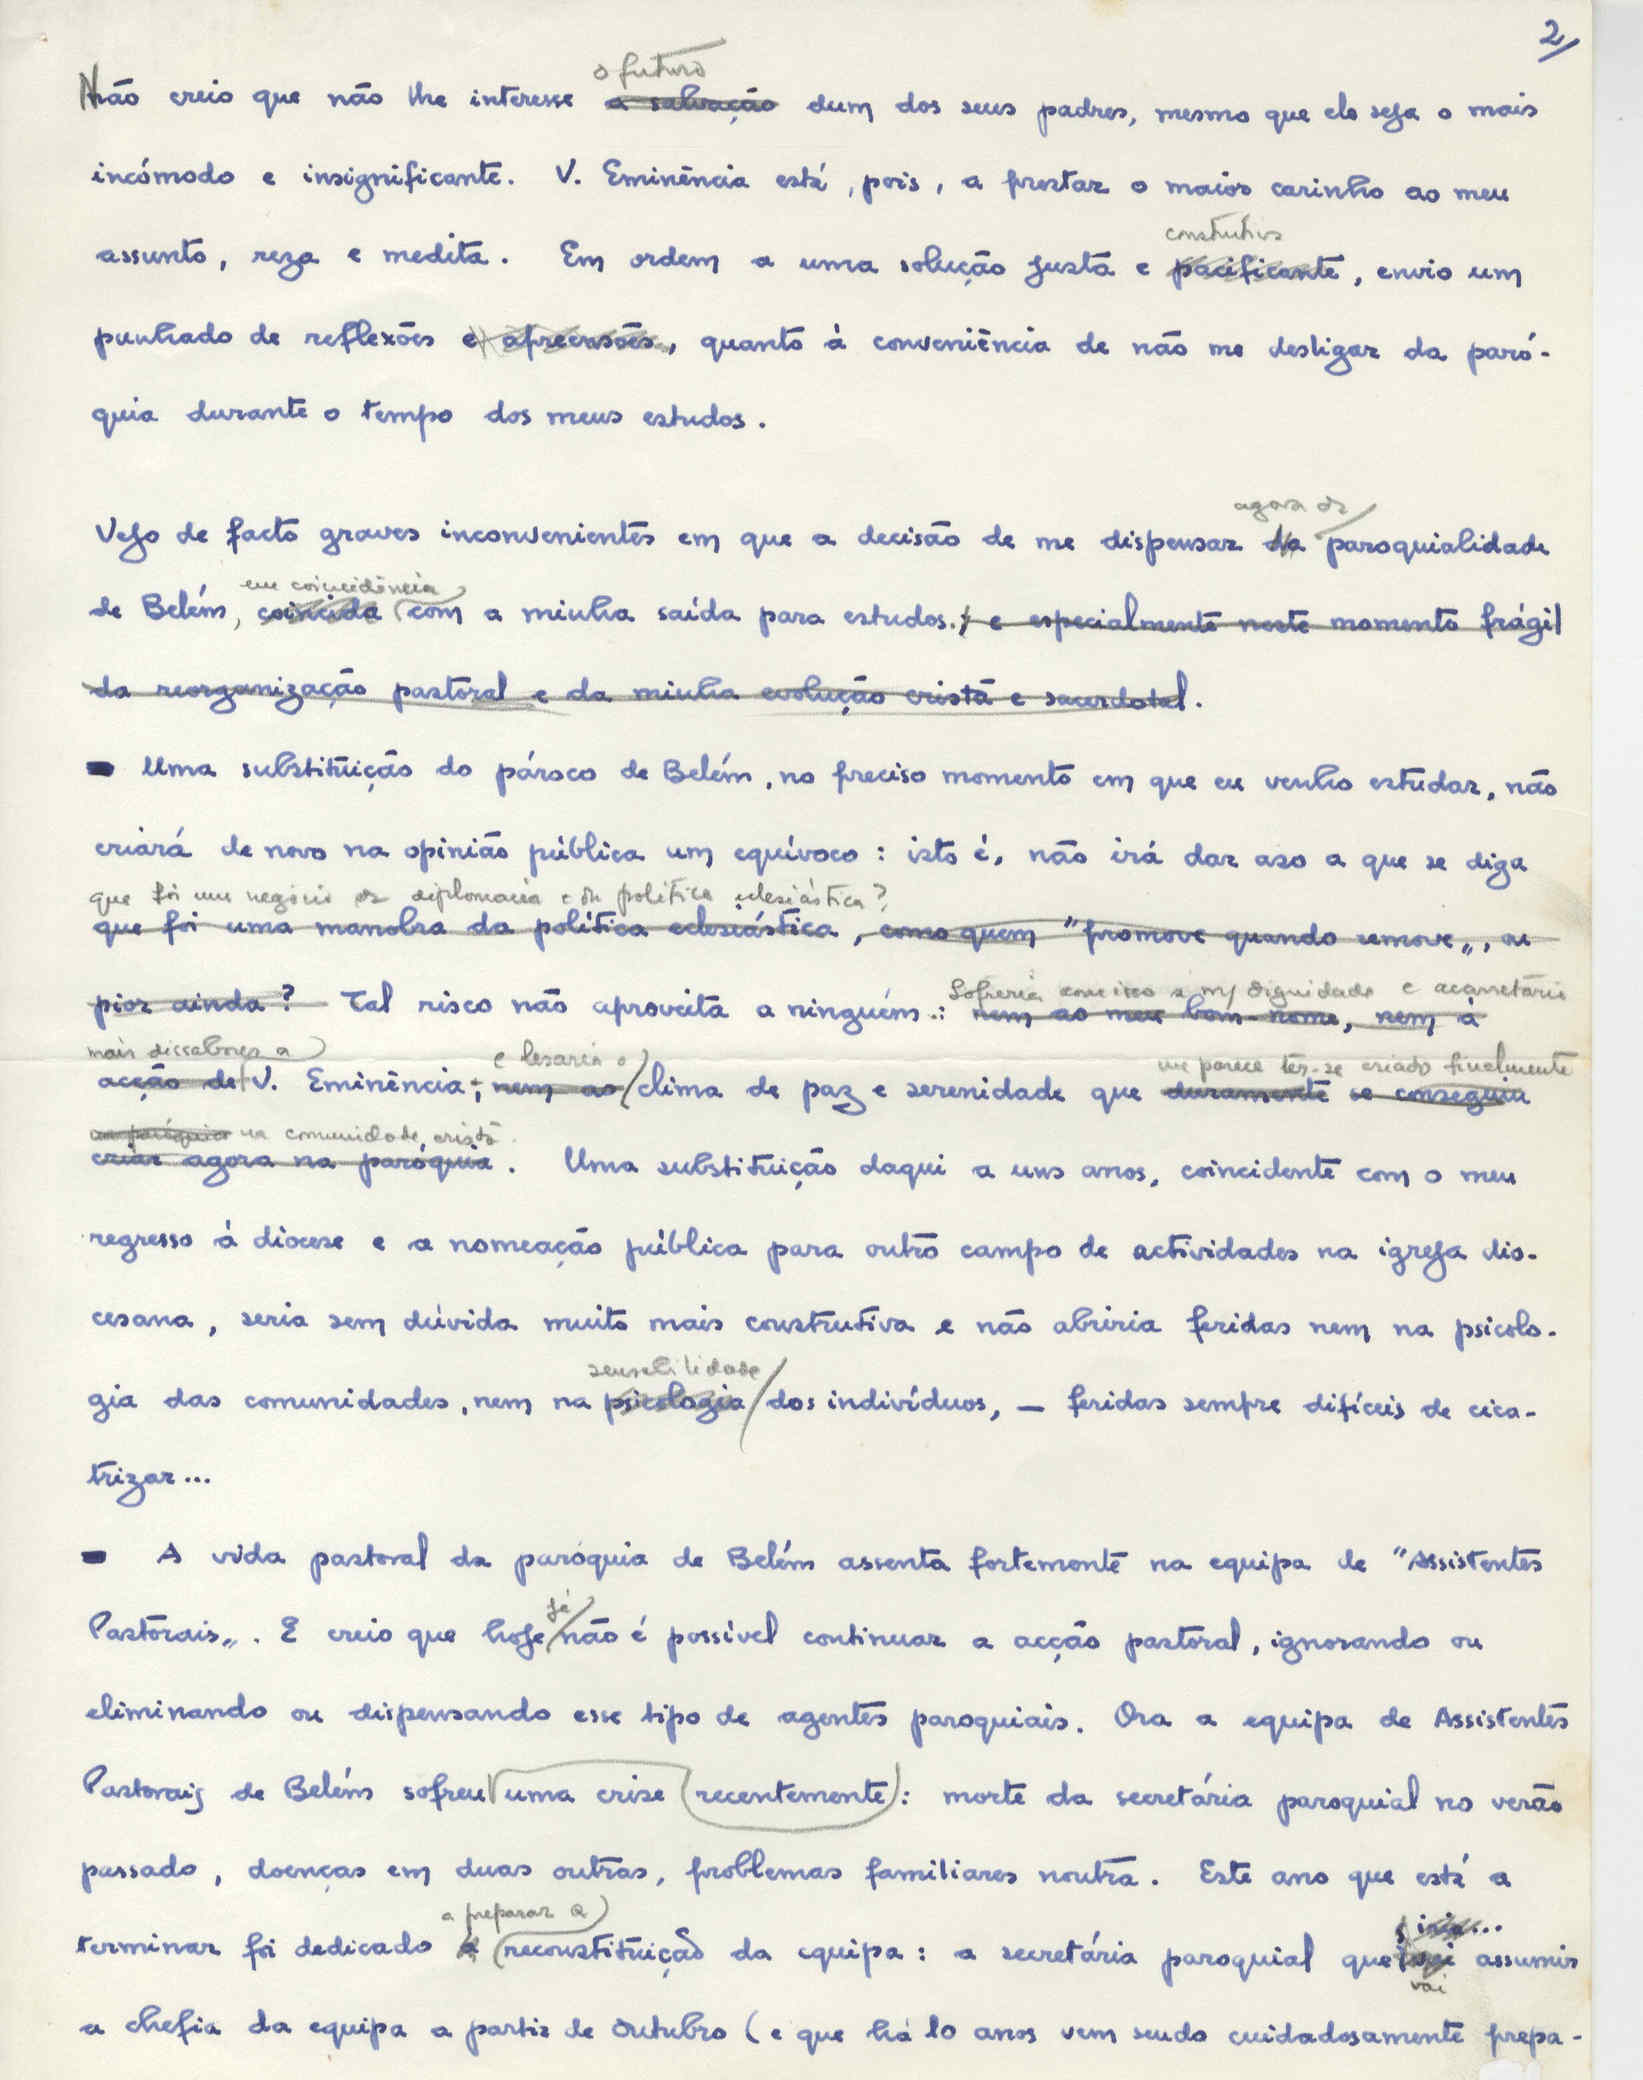 2/
o futuro
Não creio que não lhe interesse a salvação dum dos seus padres, mesmo que ele seja o mais
incómodo e insignificante. V. Eminência está, pois, a prestar o maior carinho ao meu
construtiva
assunto, reza e medita. Em ordem a uma solução justa e pacificante, envio um
punhado de reflexões e apreensões, quanto à conveniência de não me desligar da paró-
quia durante o tempo dos meus estudos.
agora da
Vejo de facto graves inconvenientes em que a decisão de me dispensar da paroquialidade
em coincidência
de Belém, coincida com a minha saída para estudos.; e especialmente neste momento frágil
da reorganização pastoral e da minha evolução cristã e sacerdotal.
- Uma substituição do pároco de Belém, no preciso momento em que eu venho estudar, não
criará de novo na opinião pública um equívoco: isto é, não irá dar azo a que se diga
que foi um negócio de diplomacia e de política eclesiástica?
que foi uma manobra da política eclesiástica, como quem "promove quando remove", ou
Sofreria com isso a m/ dignidade e acarretaria
pior ainda? Tal risco não aproveita a ninguém.: nem ao meu bom-nome, nem à
mais dissabores a e lesaria o me parece ter-se criado finalmente
acção de V. Eminência, nem ao clima de paz e serenidade que duramente se conseguiu
na paróquia na comunidade cristã.
criar agora na paróquia. Uma substituição daqui a uns anos, coincidente com o meu
regresso à diocese e a nomeação pública para outro campo de actividades na igreja dio-
cesana, seria sem dúvida muito mais construtiva e não abriria feridas nem na psicolo-
sensibilidade
gia das comunidades, nem na psicologia dos indivíduos, — feridas sempre difíceis de cica-
trizar...
- A vida pastoral da paróquia de Belém assenta fortemente na equipa de "Assistentes
já
Pastorais". E creio que hoje não é possível continuar a acção pastoral, ignorando ou
eliminando ou dispensando esse tipo de agentes paroquiais. Ora a equipa de Assistentes
Pastorais de Belém sofreu uma crise recentemente: morte da secretária paroquial no verão
passado, doenças em duas outras, problemas familiares noutra. Este ano que está a
a preparar a iria...
terminar foi dedicado à reconstituição da equipa: a secretária paroquial que vai assumir
vai
a chefia da equipa a partir de Outubro (e que há 10 anos vem sendo cuidadosamente prepa-